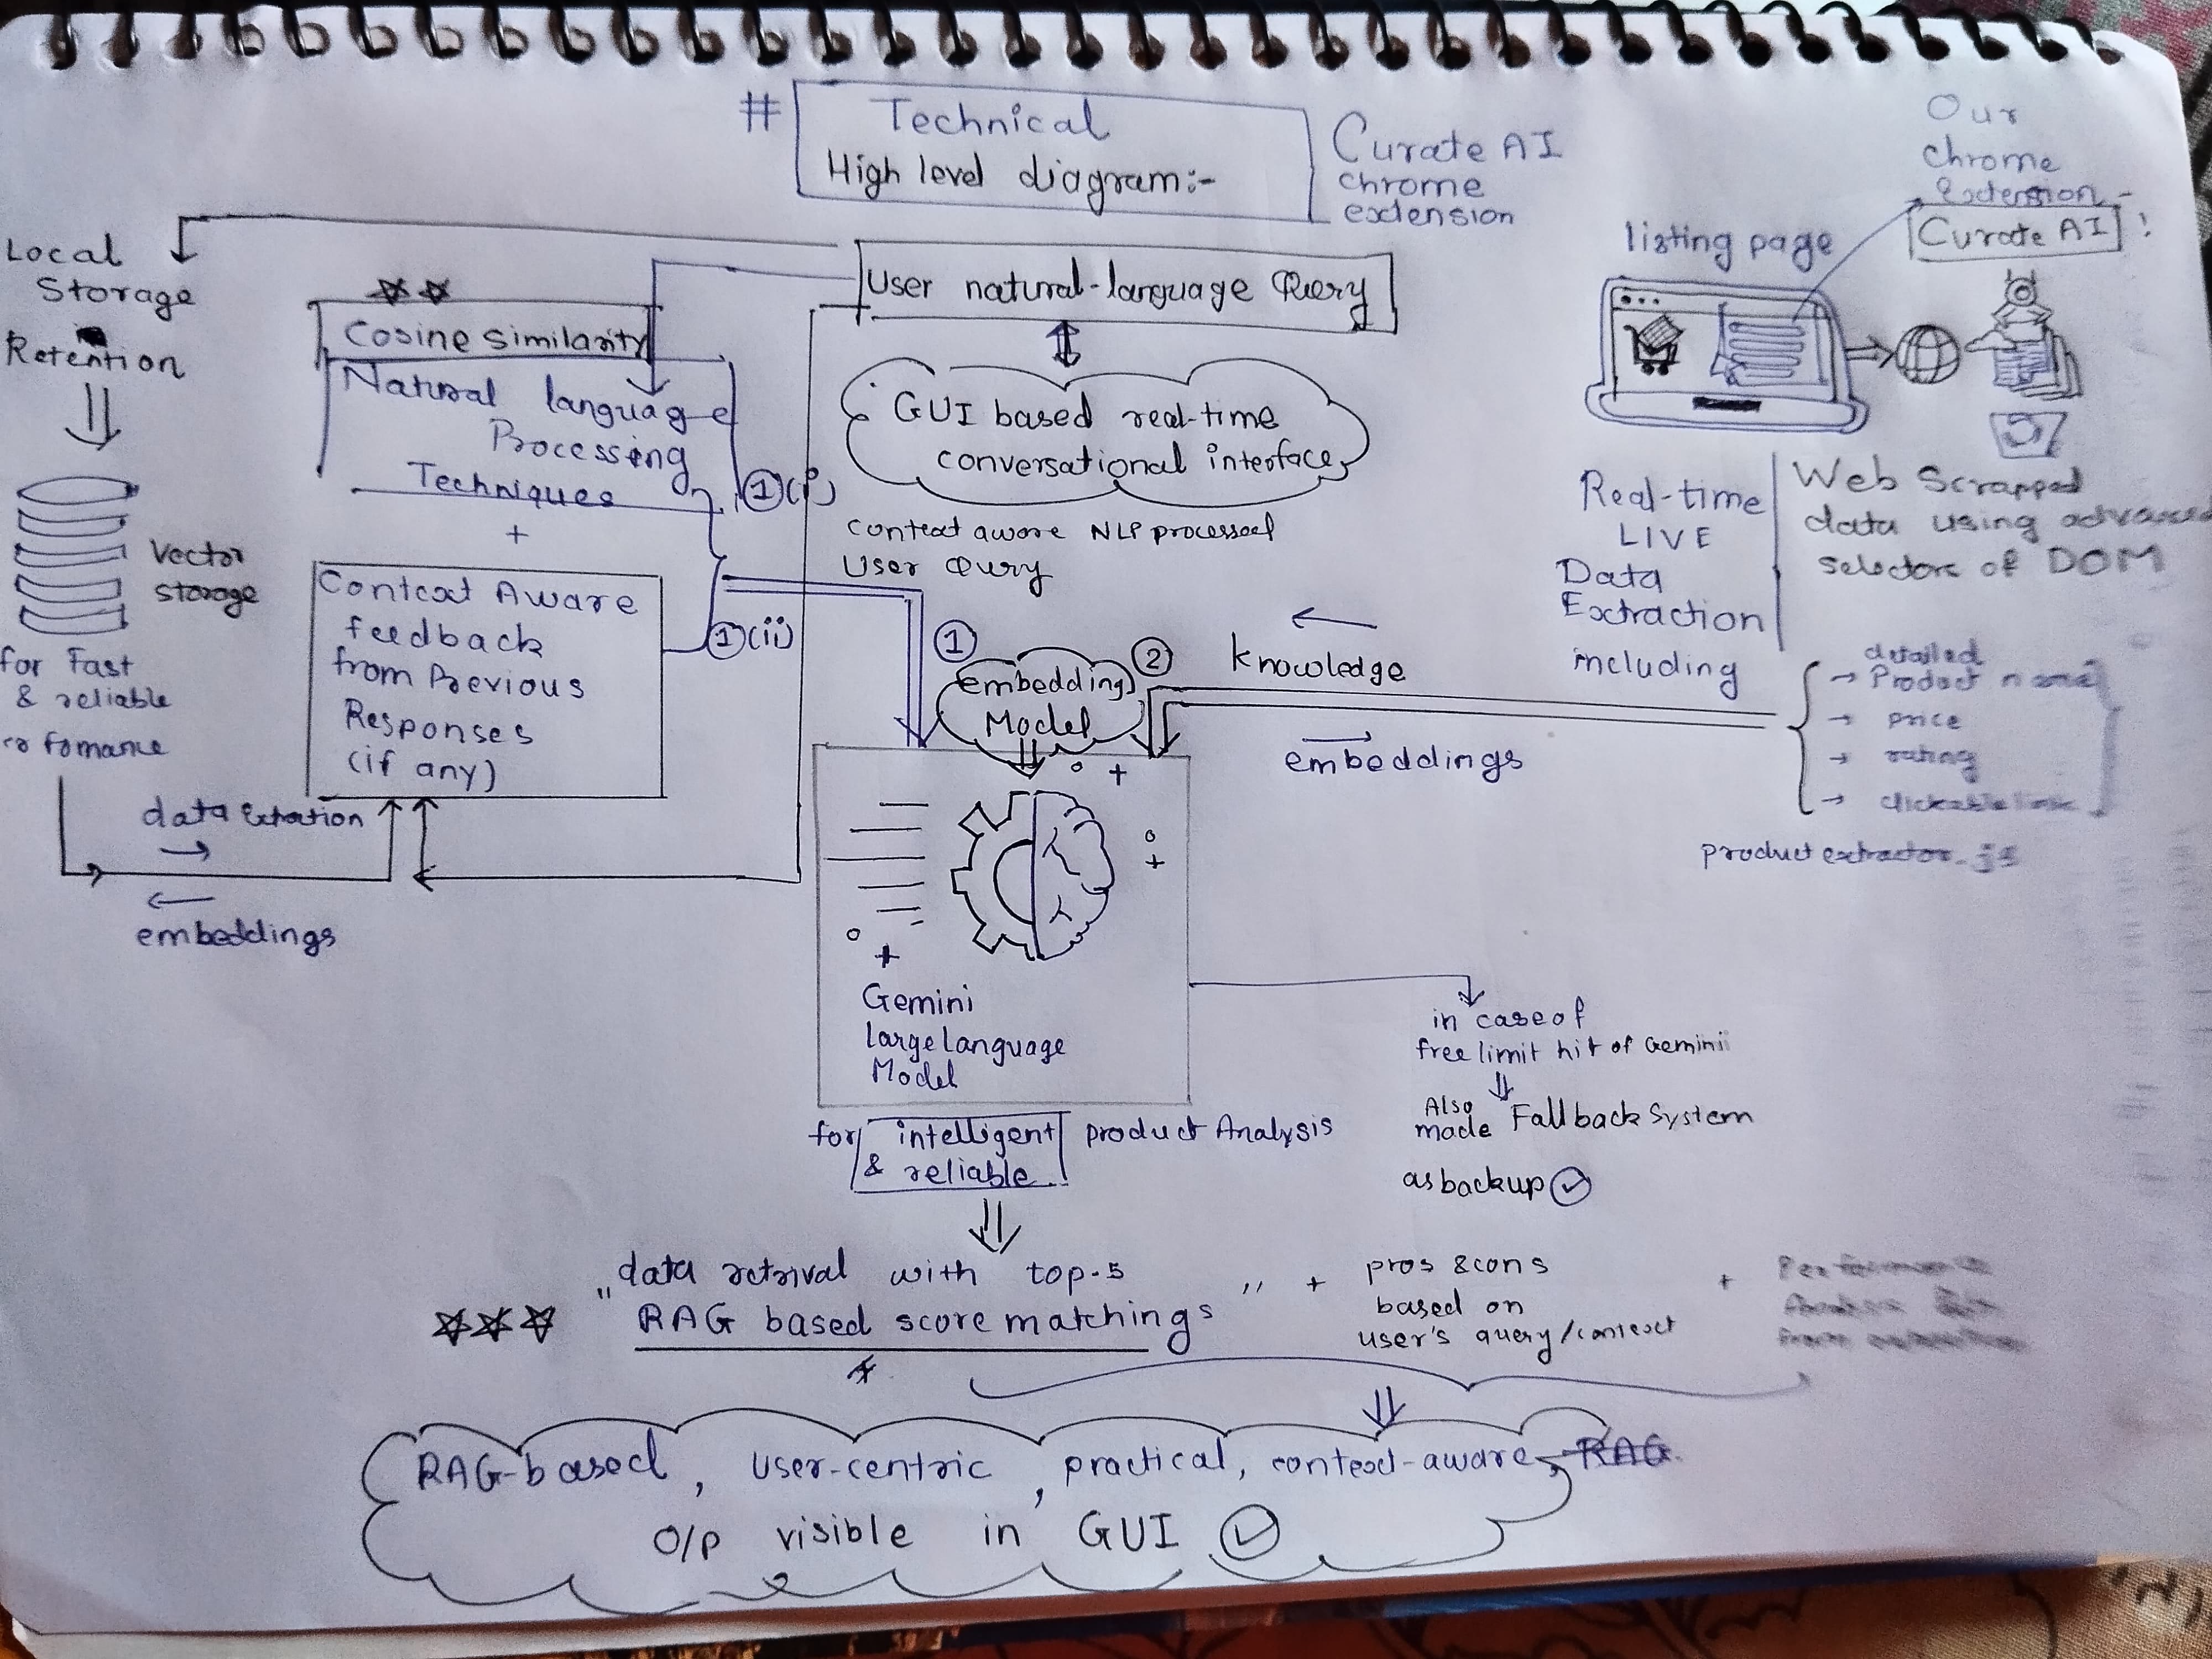 # Technical
High level diagram:-
Curate AI
chrome
extension
Our
chrome
Extension -
Curate AI !
listing page
Local
Storage
Retention
Vector
storage
for Fast
& reliable
Cosine Similarity
Natural language
Processing
Techniques
+
①(i)
Context Aware
feedback
from Previous
Responses
(if any)
①(ii)
data
embeddings
User natural-language Query
GUI based real-time
conversational interface
context aware NLP processed
User Query
①
embedding
Model
②
knowledge
embeddings
Real-time
LIVE
Data
Extraction
including
Web Scrapped
data using
selectors of DOM
→ detailed
Product name
→ price
→ rating
→ clickable link
product extractor.js
Gemini
large language
Model
for intelligent
& reliable
product Analysis
in case of
free limit hit of Gemini
Also
made Fallback System
as backup
"data retrival with top-5
RAG based score matchings"
+ pros & cons
based on
user's query/context
+
RAG-based, user-centric, practical, context-aware, RAG
O/P visible in GUI